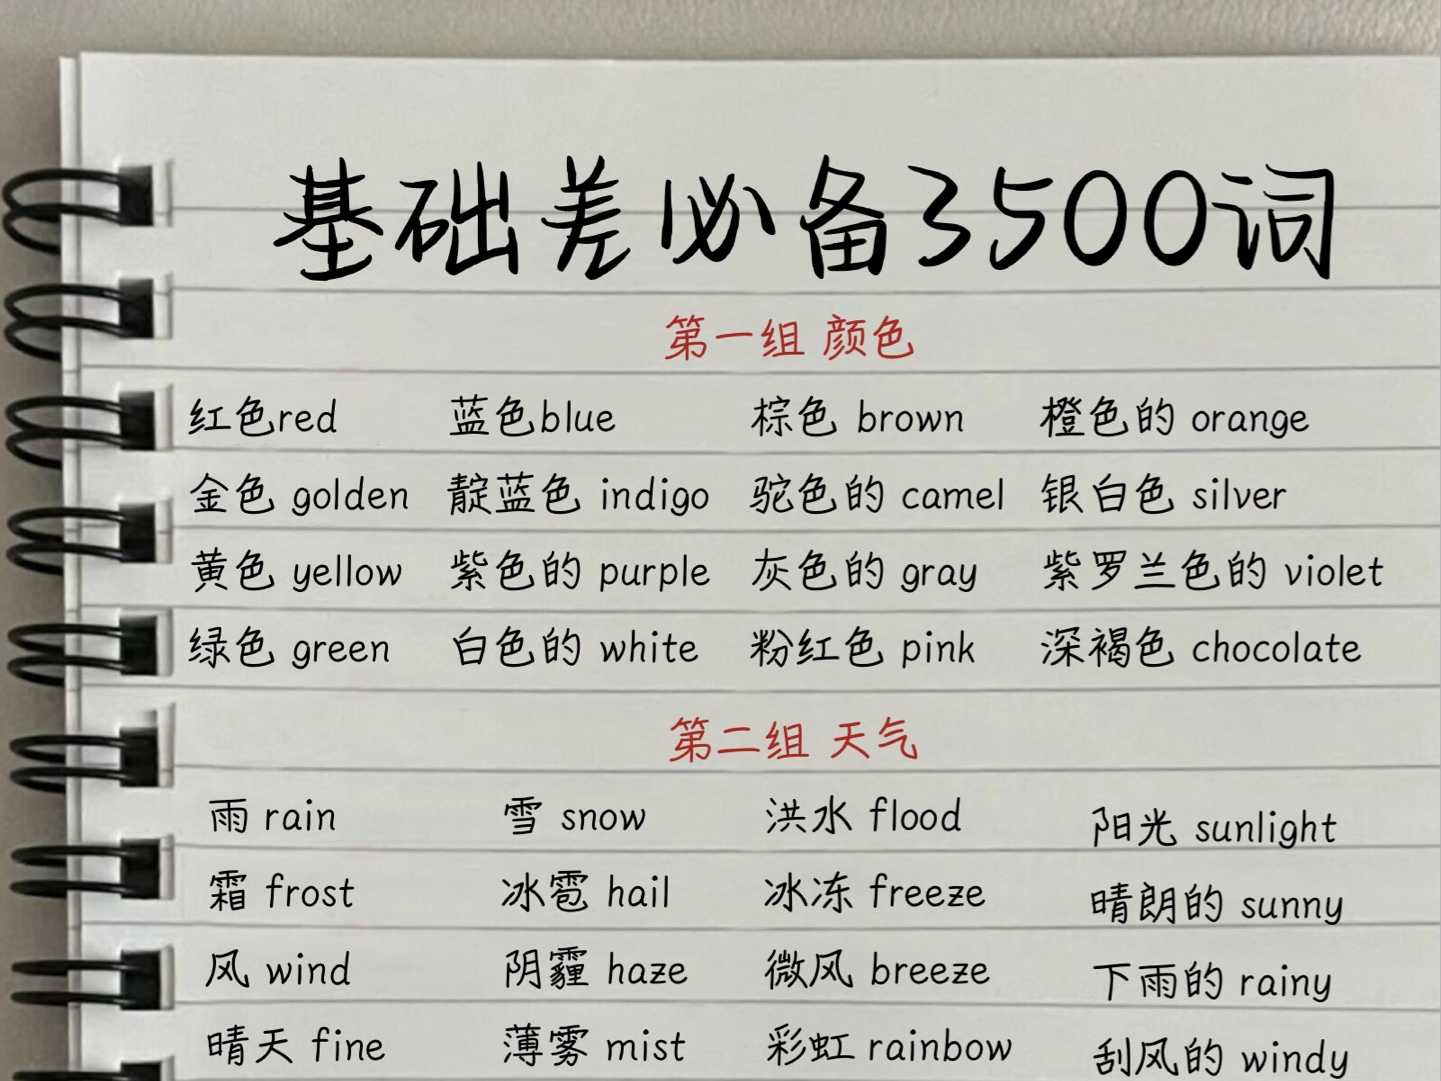 基础差必备3500词
第一组 颜色
红色red 蓝色blue 棕色 brown 橙色的 orange
金色 golden 靛蓝色 indigo 驼色的 camel 银白色 silver
黄色 yellow 紫色的 purple 灰色的 gray 紫罗兰色的 violet
绿色 green 白色的 white 粉红色 pink 深褐色 chocolate
第二组 天气
雨 rain 雪 snow 洪水 flood 阳光 sunlight
霜 frost 冰雹 hail 冰冻 freeze 晴朗的 sunny
风 wind 阴霾 haze 微风 breeze 下雨的 rainy
晴天 fine 薄雾 mist 彩虹 rainbow 刮风的 windy